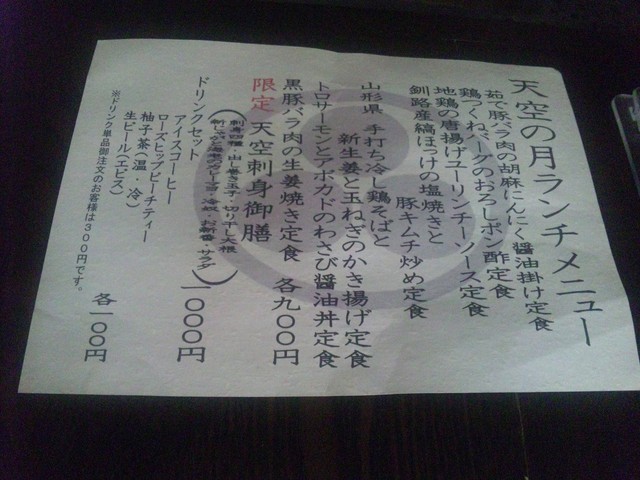 天空の月ランチメニュー
茹で豚バラ肉の胡麻にんにく醤油掛け定食
鶏つくねバーグのおろしポン酢定食
地鶏の唐揚げユーリンチーソース定食
釧路産縞ほっけの塩焼きと
豚キムチ炒め定食
山形県 手打ち冷し鶏そばと
新生姜と玉ねぎのかき揚げ定食
トロサーモンとアボカドのわさび醤油丼定食
黒豚バラ肉の生姜焼き定食 各九〇〇円
限定 天空刺身御膳
刺身四種・出し巻き玉子・切り干し大根
冷奴・お新香・サラダ
一〇〇〇円
ドリンクセット
アイスコーヒー
ローズヒップピーチティー
柚子茶(温・冷)
生ビール(エビス)
各一〇〇円
※ドリンク単品御注文のお客様は300円です。